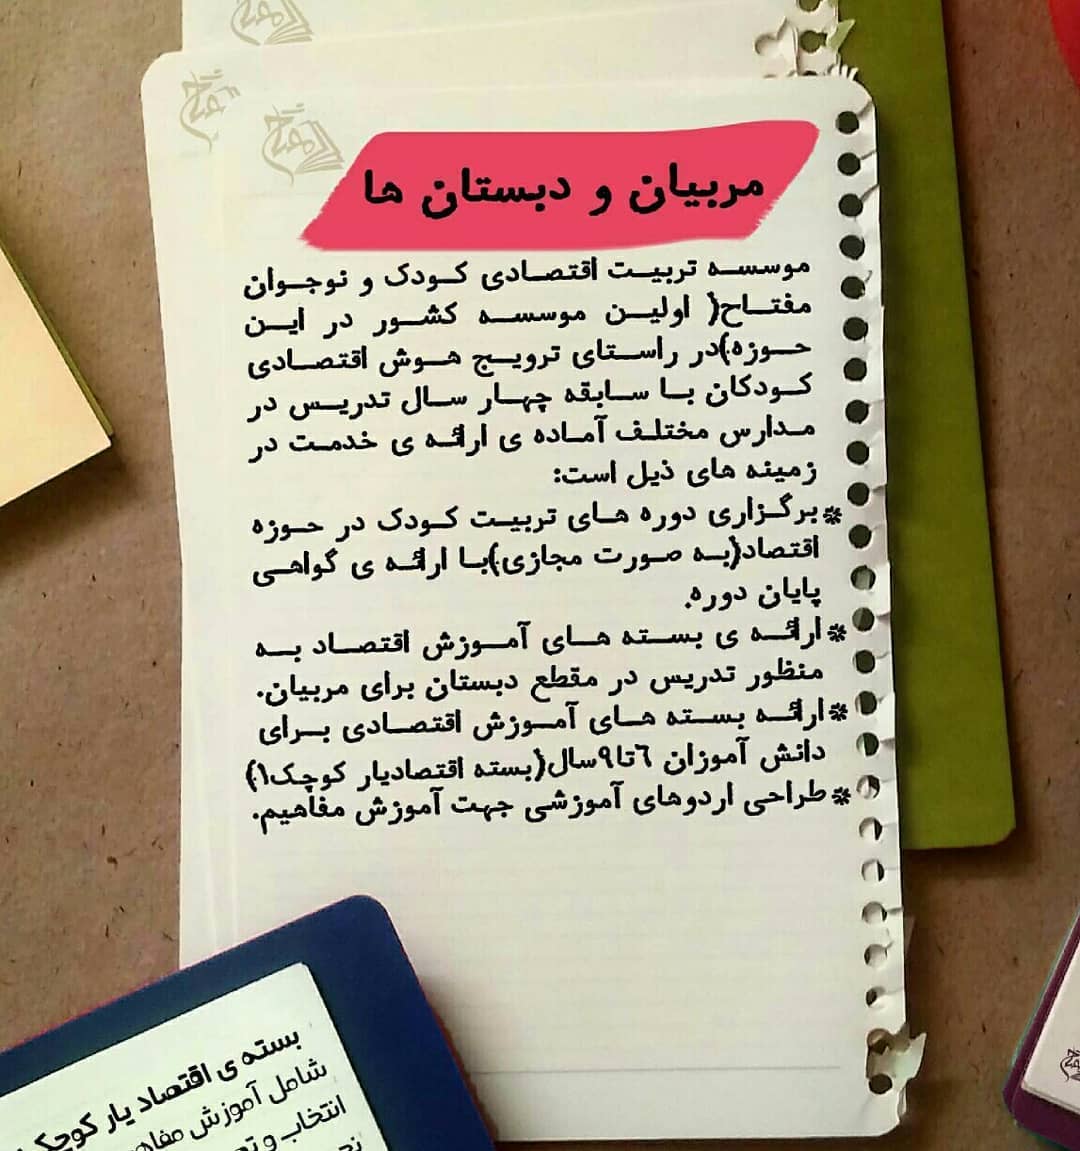 مربیان و دبستان ها
موسسه تربیت اقتصادی کودک و نوجوان
مفتاح( اولین موسسه کشور در این
حوزه)در راستای ترویج هوش اقتصادی
کودکان با سابقه چهار سال تدریس در
مدارس مختلف آماده ی ارائه ی خدمت در
زمینه های ذیل است:
*برگزاری دوره های تربیت کودک در حوزه
اقتصاد(به صورت مجازی)با ارائه ی گواهی
پایان دوره.
*ارائه ی بسته های آموزش اقتصاد به
منظور تدریس در مقطع دبستان برای مربیان.
*ارائه بسته های آموزش اقتصادی برای
دانش آموزان ۶تا۹سال(بسته اقتصادیار کوچک۱)
*طراحی اردوهای آموزشی جهت آموزش مفاهیم.
بسته ی اقتصاد یار کوچک
شامل آموزش
انتخاب و